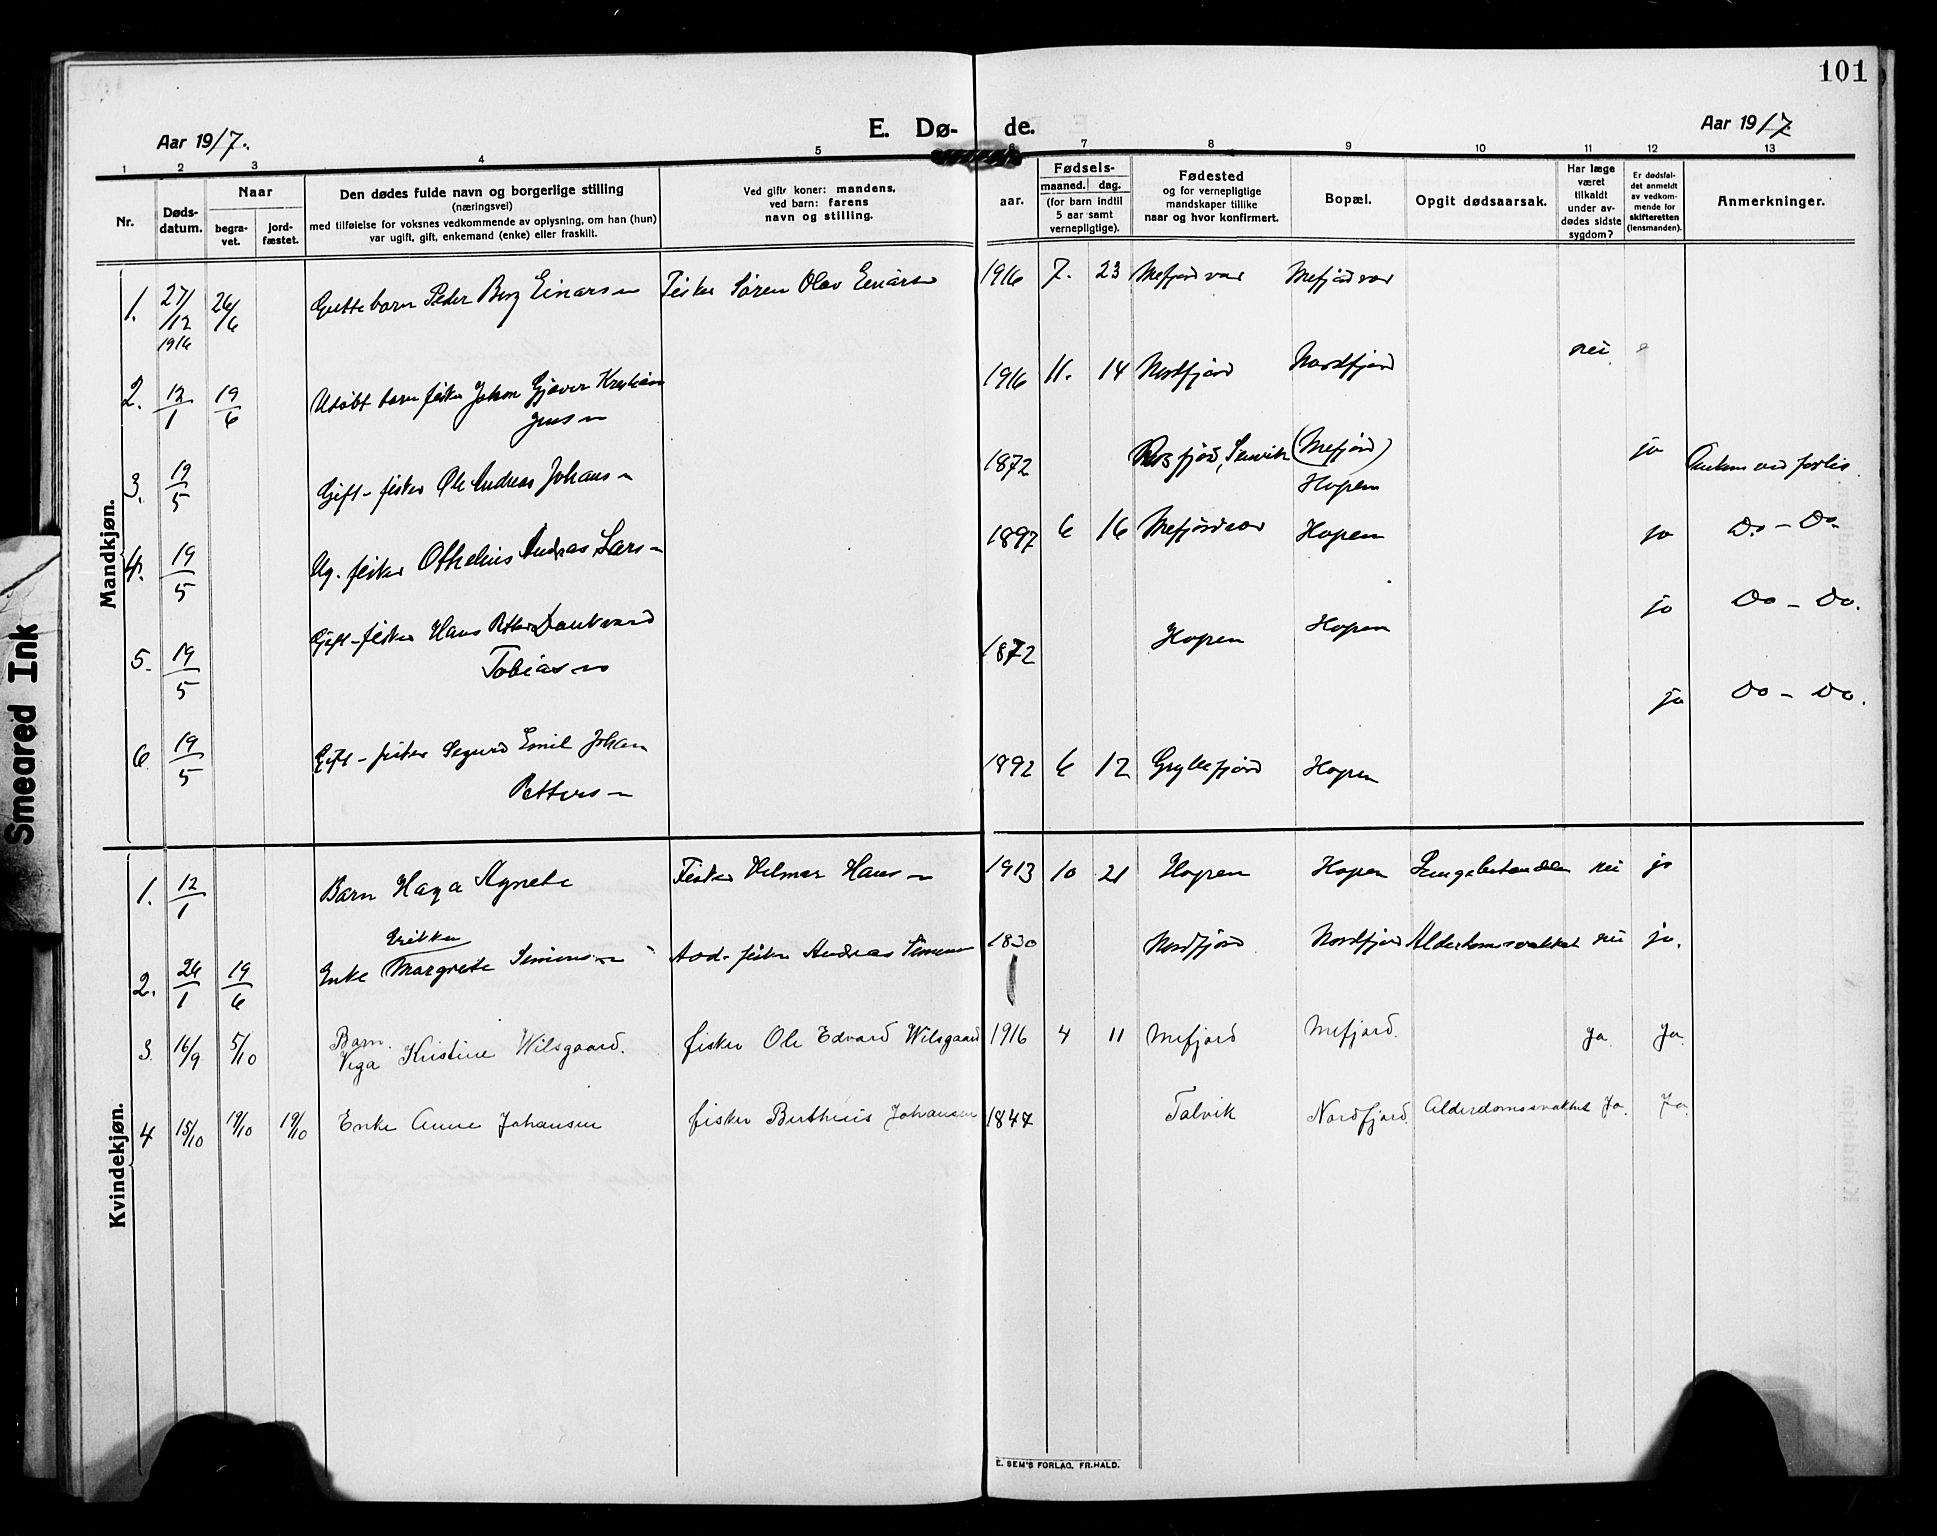 101
Aar 1917.
E. Dø-
de.
Aar 1917.
1 2 3 4 5 6 7 8 9 10 11 12 13
Nr.
Døds-
datum.
Naar
begra-
vet.
jord-
fæstet.
Den dødes fulde navn og borgerlige stilling
(næringsvei)
med tilføielse for voksnes vedkommende av oplysning, om han (hun)
var ugift, gift, enkemand (enke) eller fraskilt.
Ved gifte koner: mandens,
ved barn: farens
navn og stilling.
aar.
Fødsels-
maaned. dag.
(for barn indtil
5 aar samt
vernepligtige).
Fødested
og for vernepligtige
mandskaper tillike
naar og hvor konfirmert.
Bopæl.
Opgit dødsaarsak.
Har læge
været
tilkaldt
under av-
dødes sidste
sygdom?
Er dødsfal-
det anmeldt
av vedkom-
mende for
skifteretten
(lensmanden).
Anmerkninger.
Mandkjøn.
1. 27/12 1916 26/6 Guttebarn Peder Berg Einarsen Fisker Søren Olav Einarsen 1916 7. 23 Mefjordvær Mefjordvær
2. 12/1 19/6 Udøbt barn fisker Johan Gjæver Kristian
Jensen 1916 11. 14 Nordfjord Nordfjord nei
3. 19/5 Gift fisker Ole Andreas Johansen 1872 fjord, Senvik (Mefjord)
Hopen ja Omkom ved forlis
4. 19/5 Ug. fisker Othelius Andreas Larsen 1897 6 16 Mefjordvær Hopen ja Do - Do.
5. 19/5 Gift fisker Hans Petter Dankvard
Tobiasen 1872 Hopen Hopen ja Do - Do.
6 19/5 Gift fisker Sigurd Emil Johan
Pettersen 1892 6 12 Gryllefjord Hopen ja Do - Do.
Kvindekjøn.
1. 12/1 Barn Haga Agnete Fisker Hilmar Hansen 1913 10 21 Hopen Hopen Lungebetændelse nei ja
2. 26/1 19/6 Enke Margrete Simonsen Avd. fisker Andreas Simonsen 1830 Nordfjord Nordfjord Alderdomssvakhet nei ja.
3. 16/9 5/10 Barn.
Vega Kristine Wilsgaard. fisker Ole Edvard Wilsgaard 1916 4 11 Mefjord Mefjord. Ja. Ja.
4 15/10 19/10 19/10 Enke Anne Johansen fisker Berthius Johansen 1847 Talvik Nordfjord. Alderdomssvakhet Ja. Ja.
E. SEM'S FORLAG, FR.HALD.
Smeared Ink